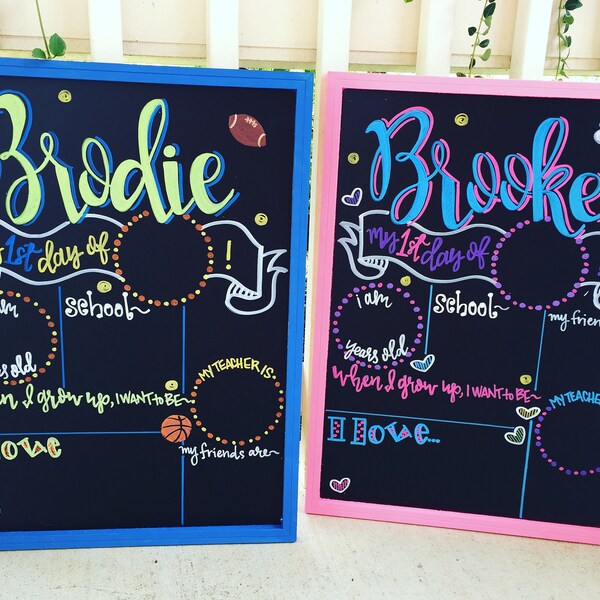 Brodie
1st day of !
am
school
years old
I grow up, I WANT TO BE
MY TEACHER IS:
Love
my friends are
Brooke
my 1st day of
i am
school
my friends
years old
when I grow up, I WANT TO BE
MY TEACHER
I Love...